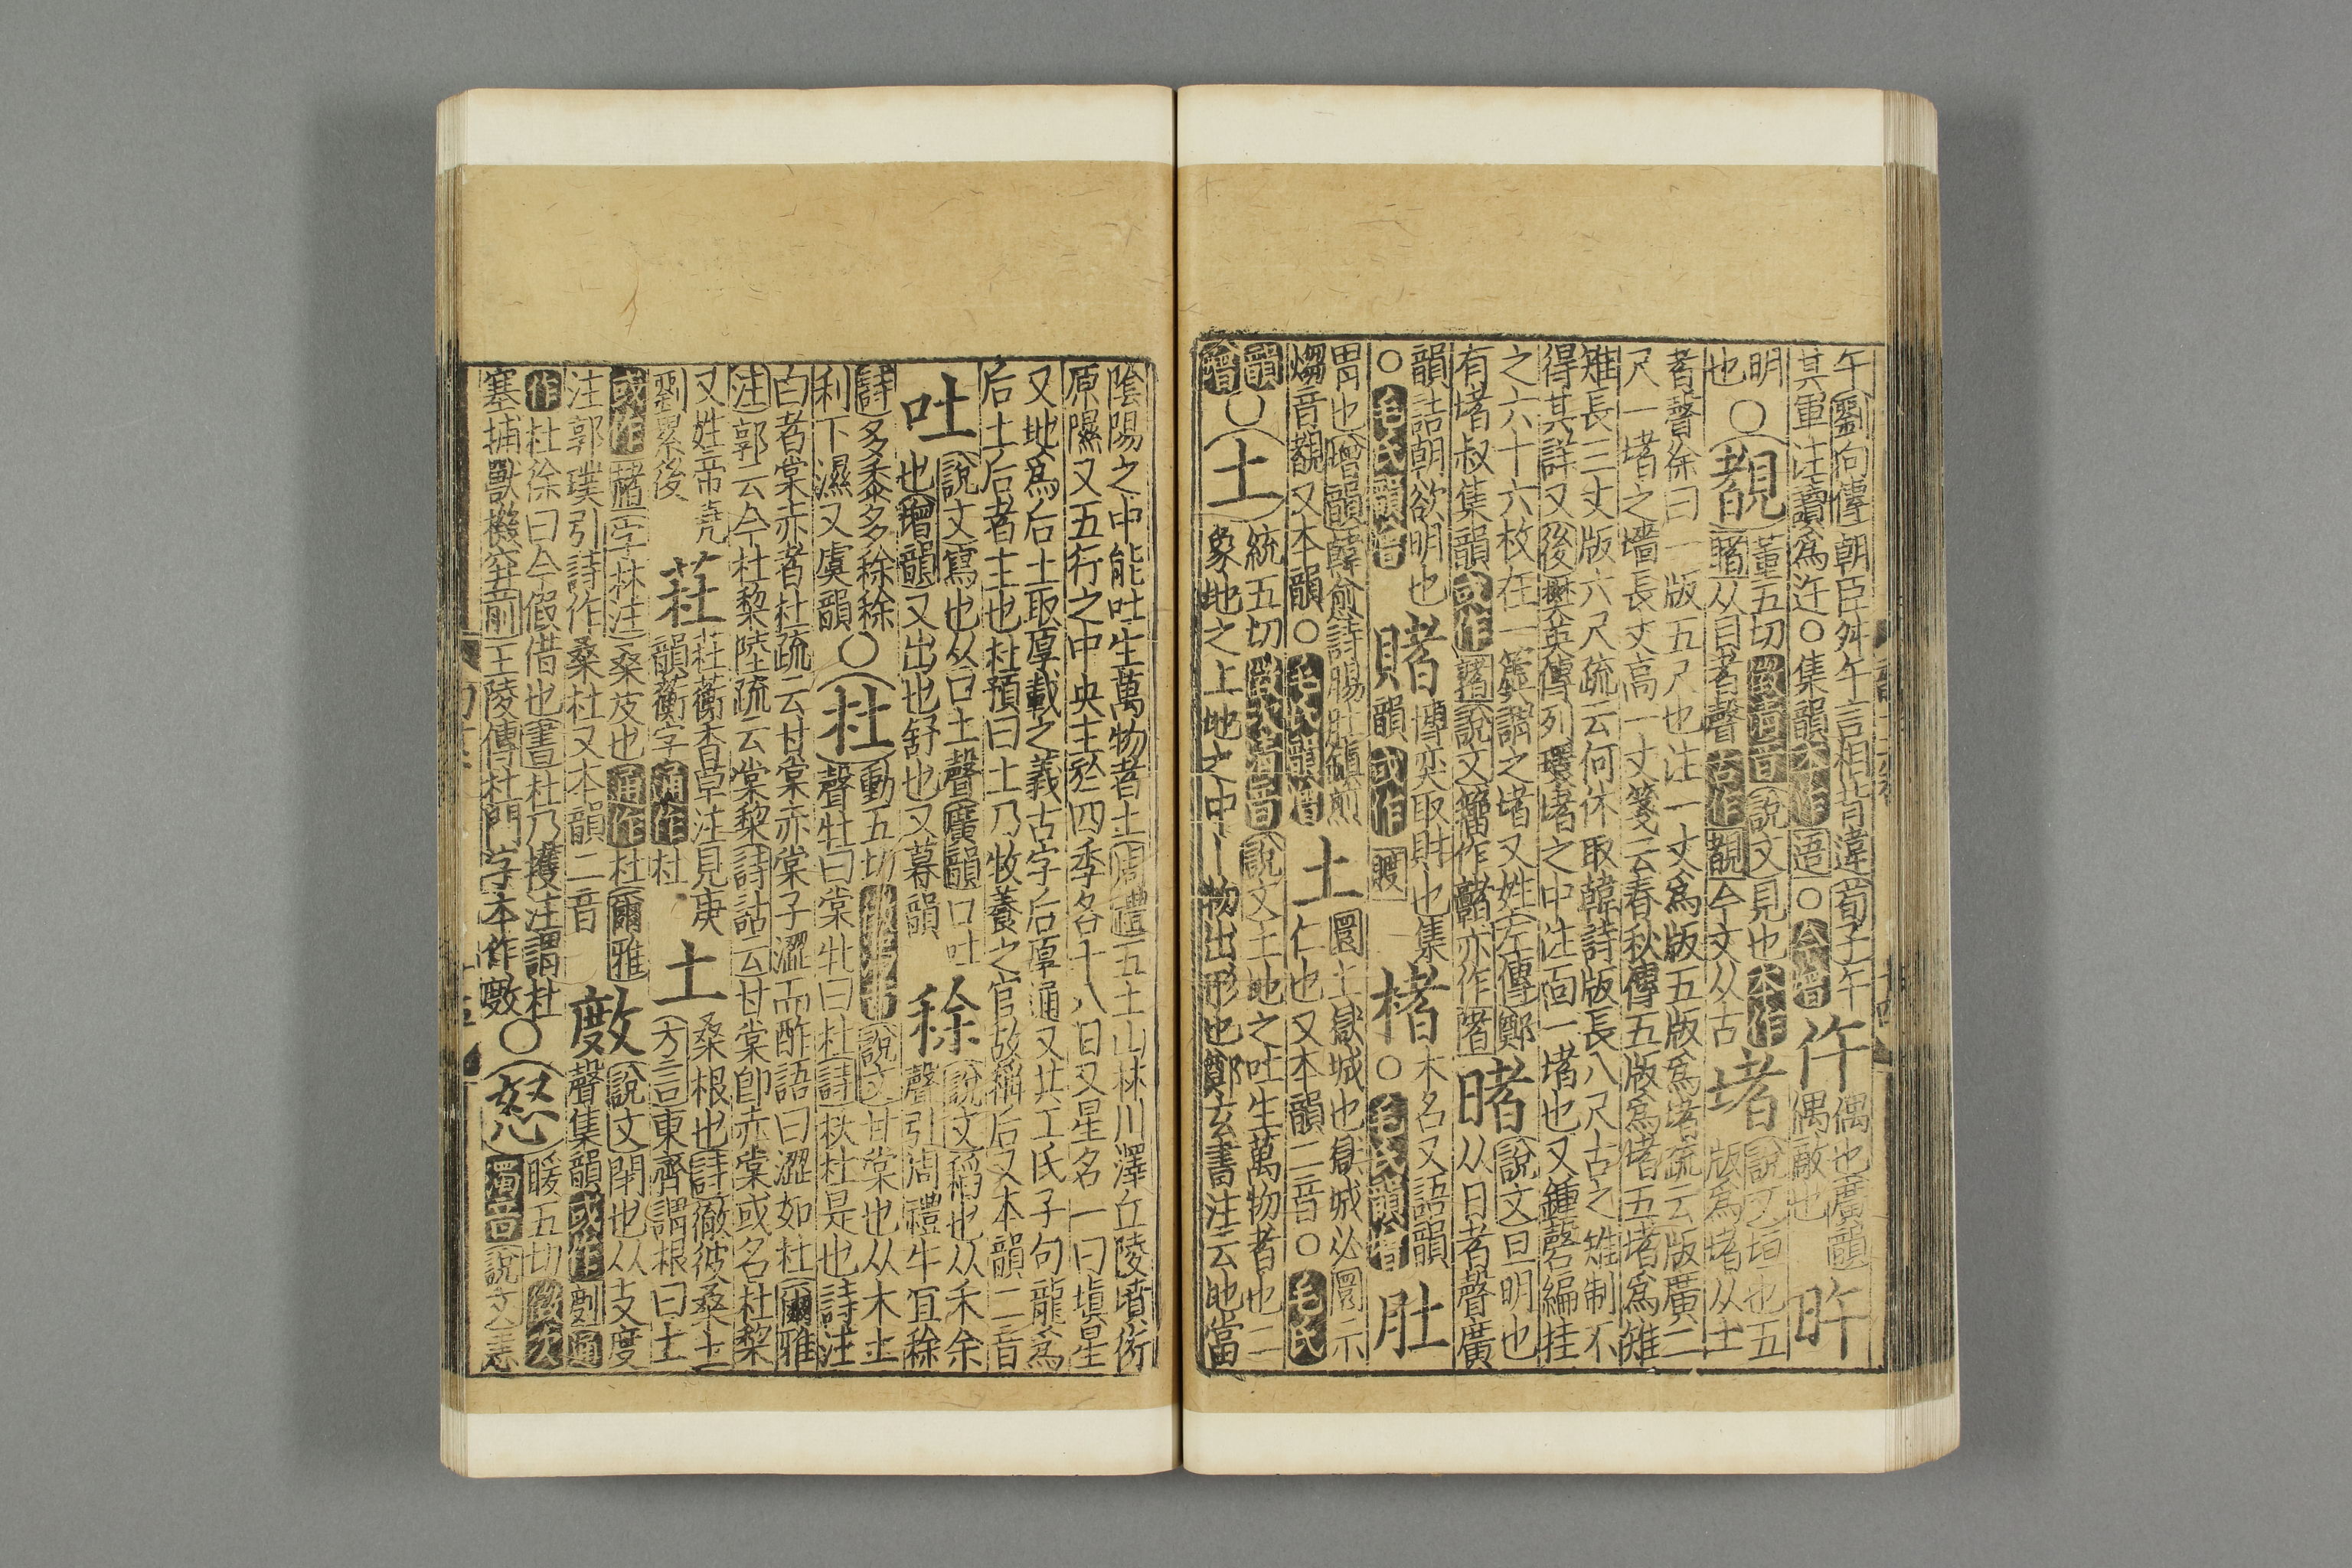 午劉向傳朝臣舛午言相背違荀子午
其軍注讀爲迕○集韻本作𨔶○今增
仵
偶也廣韻
偶敵也
旿
明
也
○
覩
董五切說文見也本作
睹从目者聲古作覩今文从古
堵
說文垣也五
版爲堵从土
者聲徐曰一版五尺也注一丈爲版五版爲堵疏云版廣二
尺一堵之墻長丈高一丈箋云春秋傳五版爲堵五堵爲雉
雉長三丈版六尺疏云何休取韓詩版長八尺古之雉制不
得其詳又後樊英傳列環堵之中注面一堵也又鍾磬編挂
之六十六枚在一簴謂之堵又姓左傳鄭
有堵叔集韻或作𡍩說文籀作𩫨亦作署
暏
說文旦明也
从日者聲廣
韻詰朝欲明也
○毛氏韻增
賭
博奕取財也集
韻或作
楮
木名又語韻
○毛氏韻增
肚
胃也增韻薛俞詩腸肚鎮煎
熠音覩又本韻○毛氏韻增
土
圜土獄城也獄城必圜示
仁也又本韻二音○毛氏
韻
增
○
土
統五切說文土地之吐生萬物者也二
象地之上地之中丨物出形也鄭玄書注云地當
陰陽之中能吐生萬物者土周禮五土山林川澤丘陵墳衍
原隰又五行之中央主於四季各十八日又星名一曰塡星
又地爲后土取厚載之義古字后厚通又共工氏子句龍爲
后土后者主也杜預曰土乃牧養之官故稱后又本韻二音
吐
說文寫也从口土聲廣韻口吐
也增韻又出也舒也又暮韻
稌
說文稻也从禾余
聲引周禮牛宜稌
詩多黍多稌稌
利下濕又虞韻
○
杜
動五切說文甘棠也从木土
聲牡曰棠牝曰杜詩杕杜是也詩注
白者棠赤者杜疏云甘棠亦棠子澀而酢語曰澀如杜爾雅
注郭云今杜黎陸疏云棠黎詩詁云甘棠卽赤棠或名杜黎
又姓帝堯
劉累後
荰
荰蘅香草注見庚
韻蘅字通作杜
土
桑根也詩徹彼桑土
方言東齊謂根曰土
或作𦺇字林注桑皮也通作杜爾雅
注郭璞引詩作桑杜又本韻二音
敷
說文閉也从攴度
聲集韻或作劇通
作杜徐曰今假借也書杜乃擭注謂杜
塞捕獸機穽前王陵傳杜門字本作敷
○
怒
暖五切
獨音說文恚